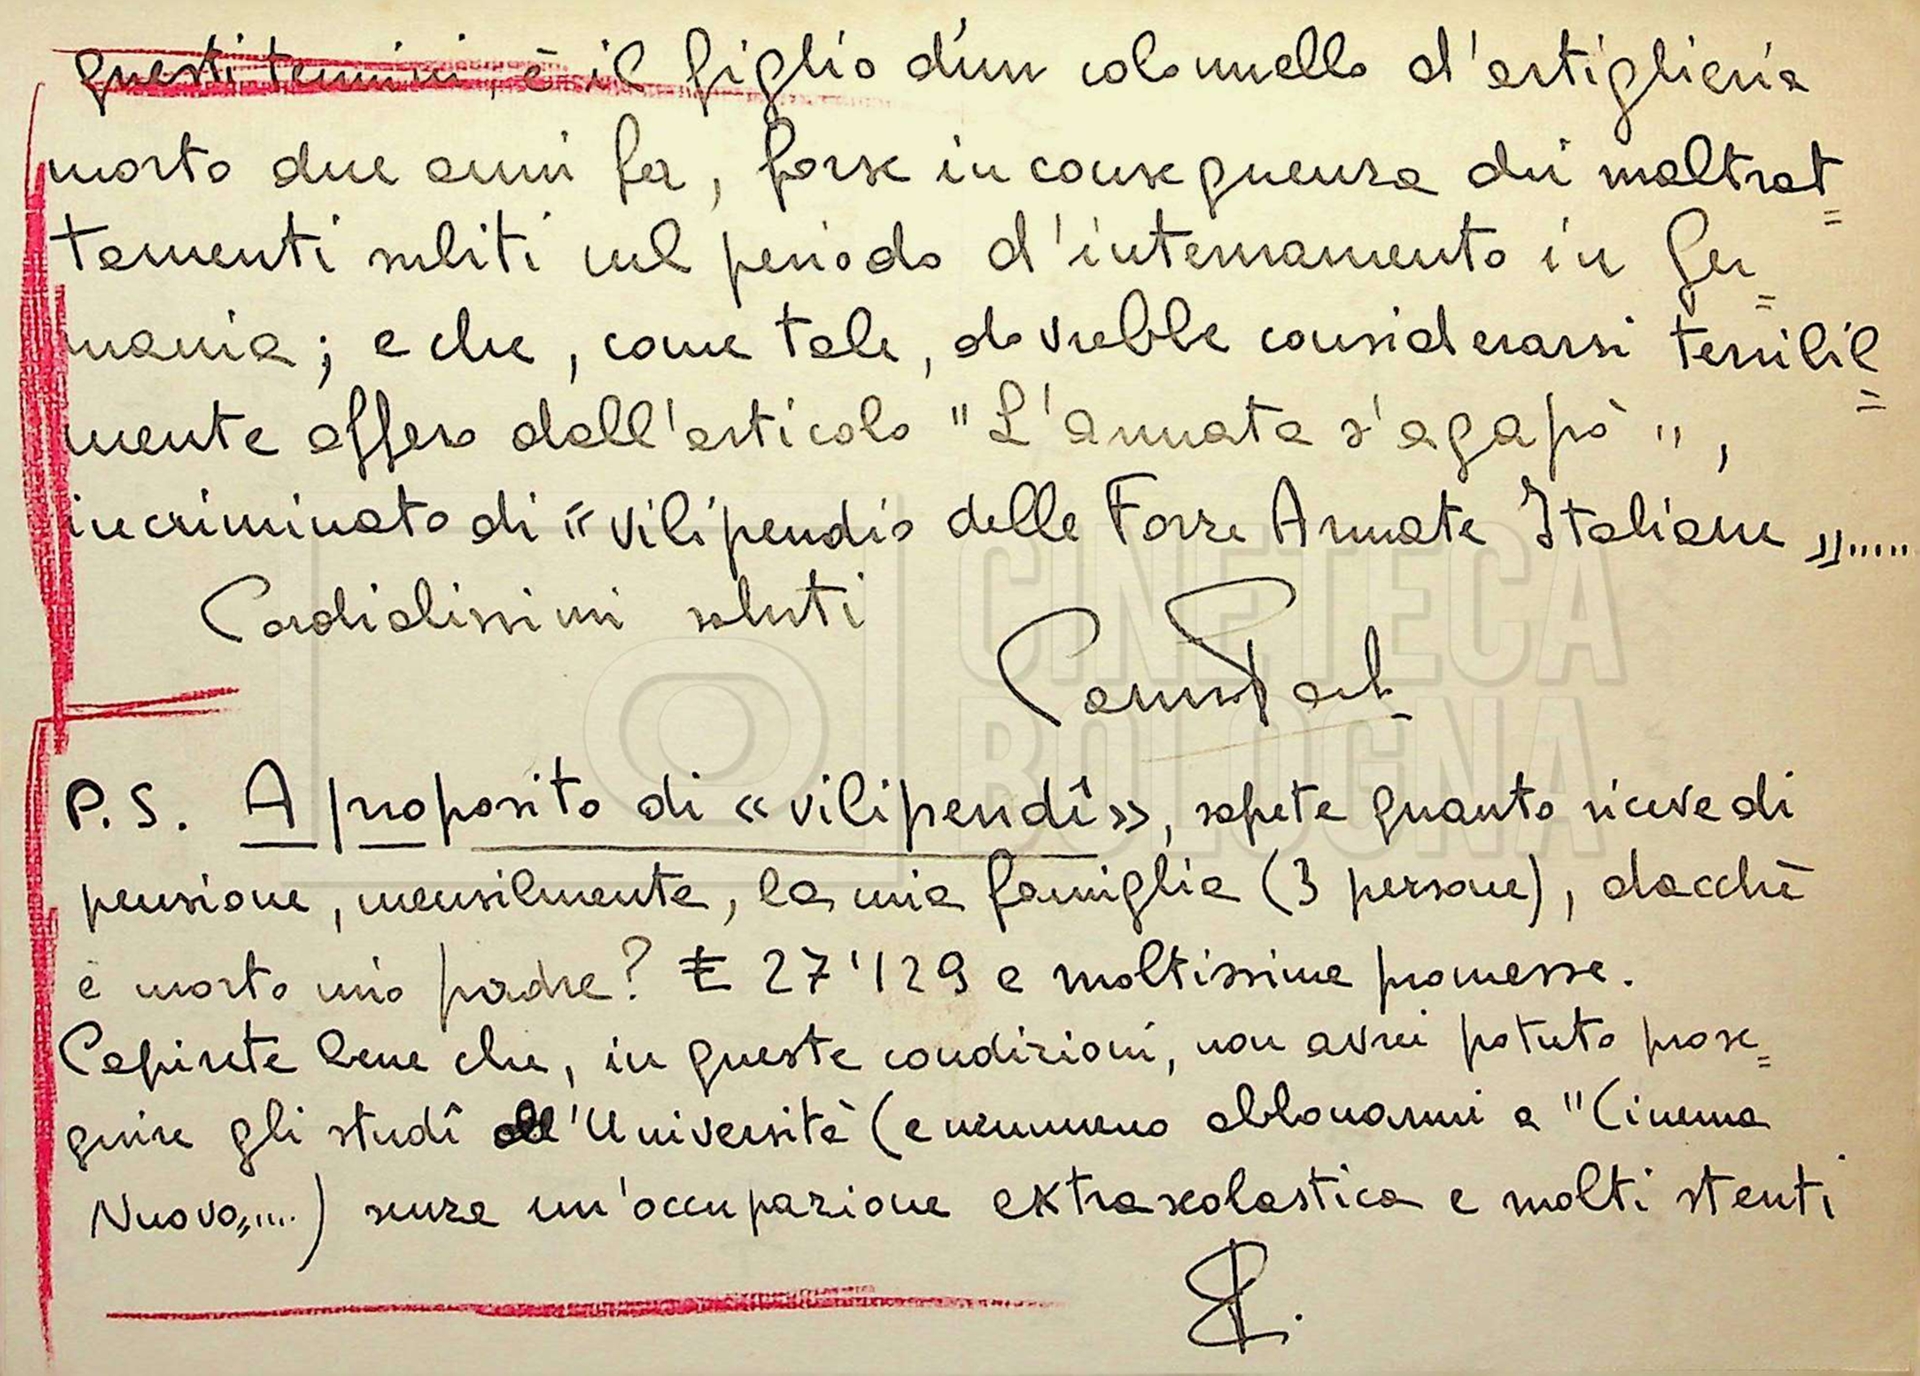 questi termini, è il figlio d'un colonnello d'artiglieria
morto due anni fa, forse in conseguenza dei maltrat=
tamenti subiti nel periodo d'internamento in Ger=
mania; e che, come tale, dovrebbe considerarsi terribil=
mente offeso dall'articolo "L'armata s'agapò",
incriminato di «vilipendio delle Forze Armate Italiane».....
Cordialissimi saluti
P.S. A proposito di «vilipendî», sapete quanto riceve di
pensione, mensilmente, la mia famiglia (3 persone), dacchè
è morto mio padre? £ 27'129 e moltissime promesse.
Capirete bene che, in queste condizioni, non avrei potuto prose=
guire gli studî all'Università (e nemmeno abbonarmi a "Cinema
Nuovo,,....) senza un'occupazione extrascolastica e molti stenti
CINETECA
BOLOGNA